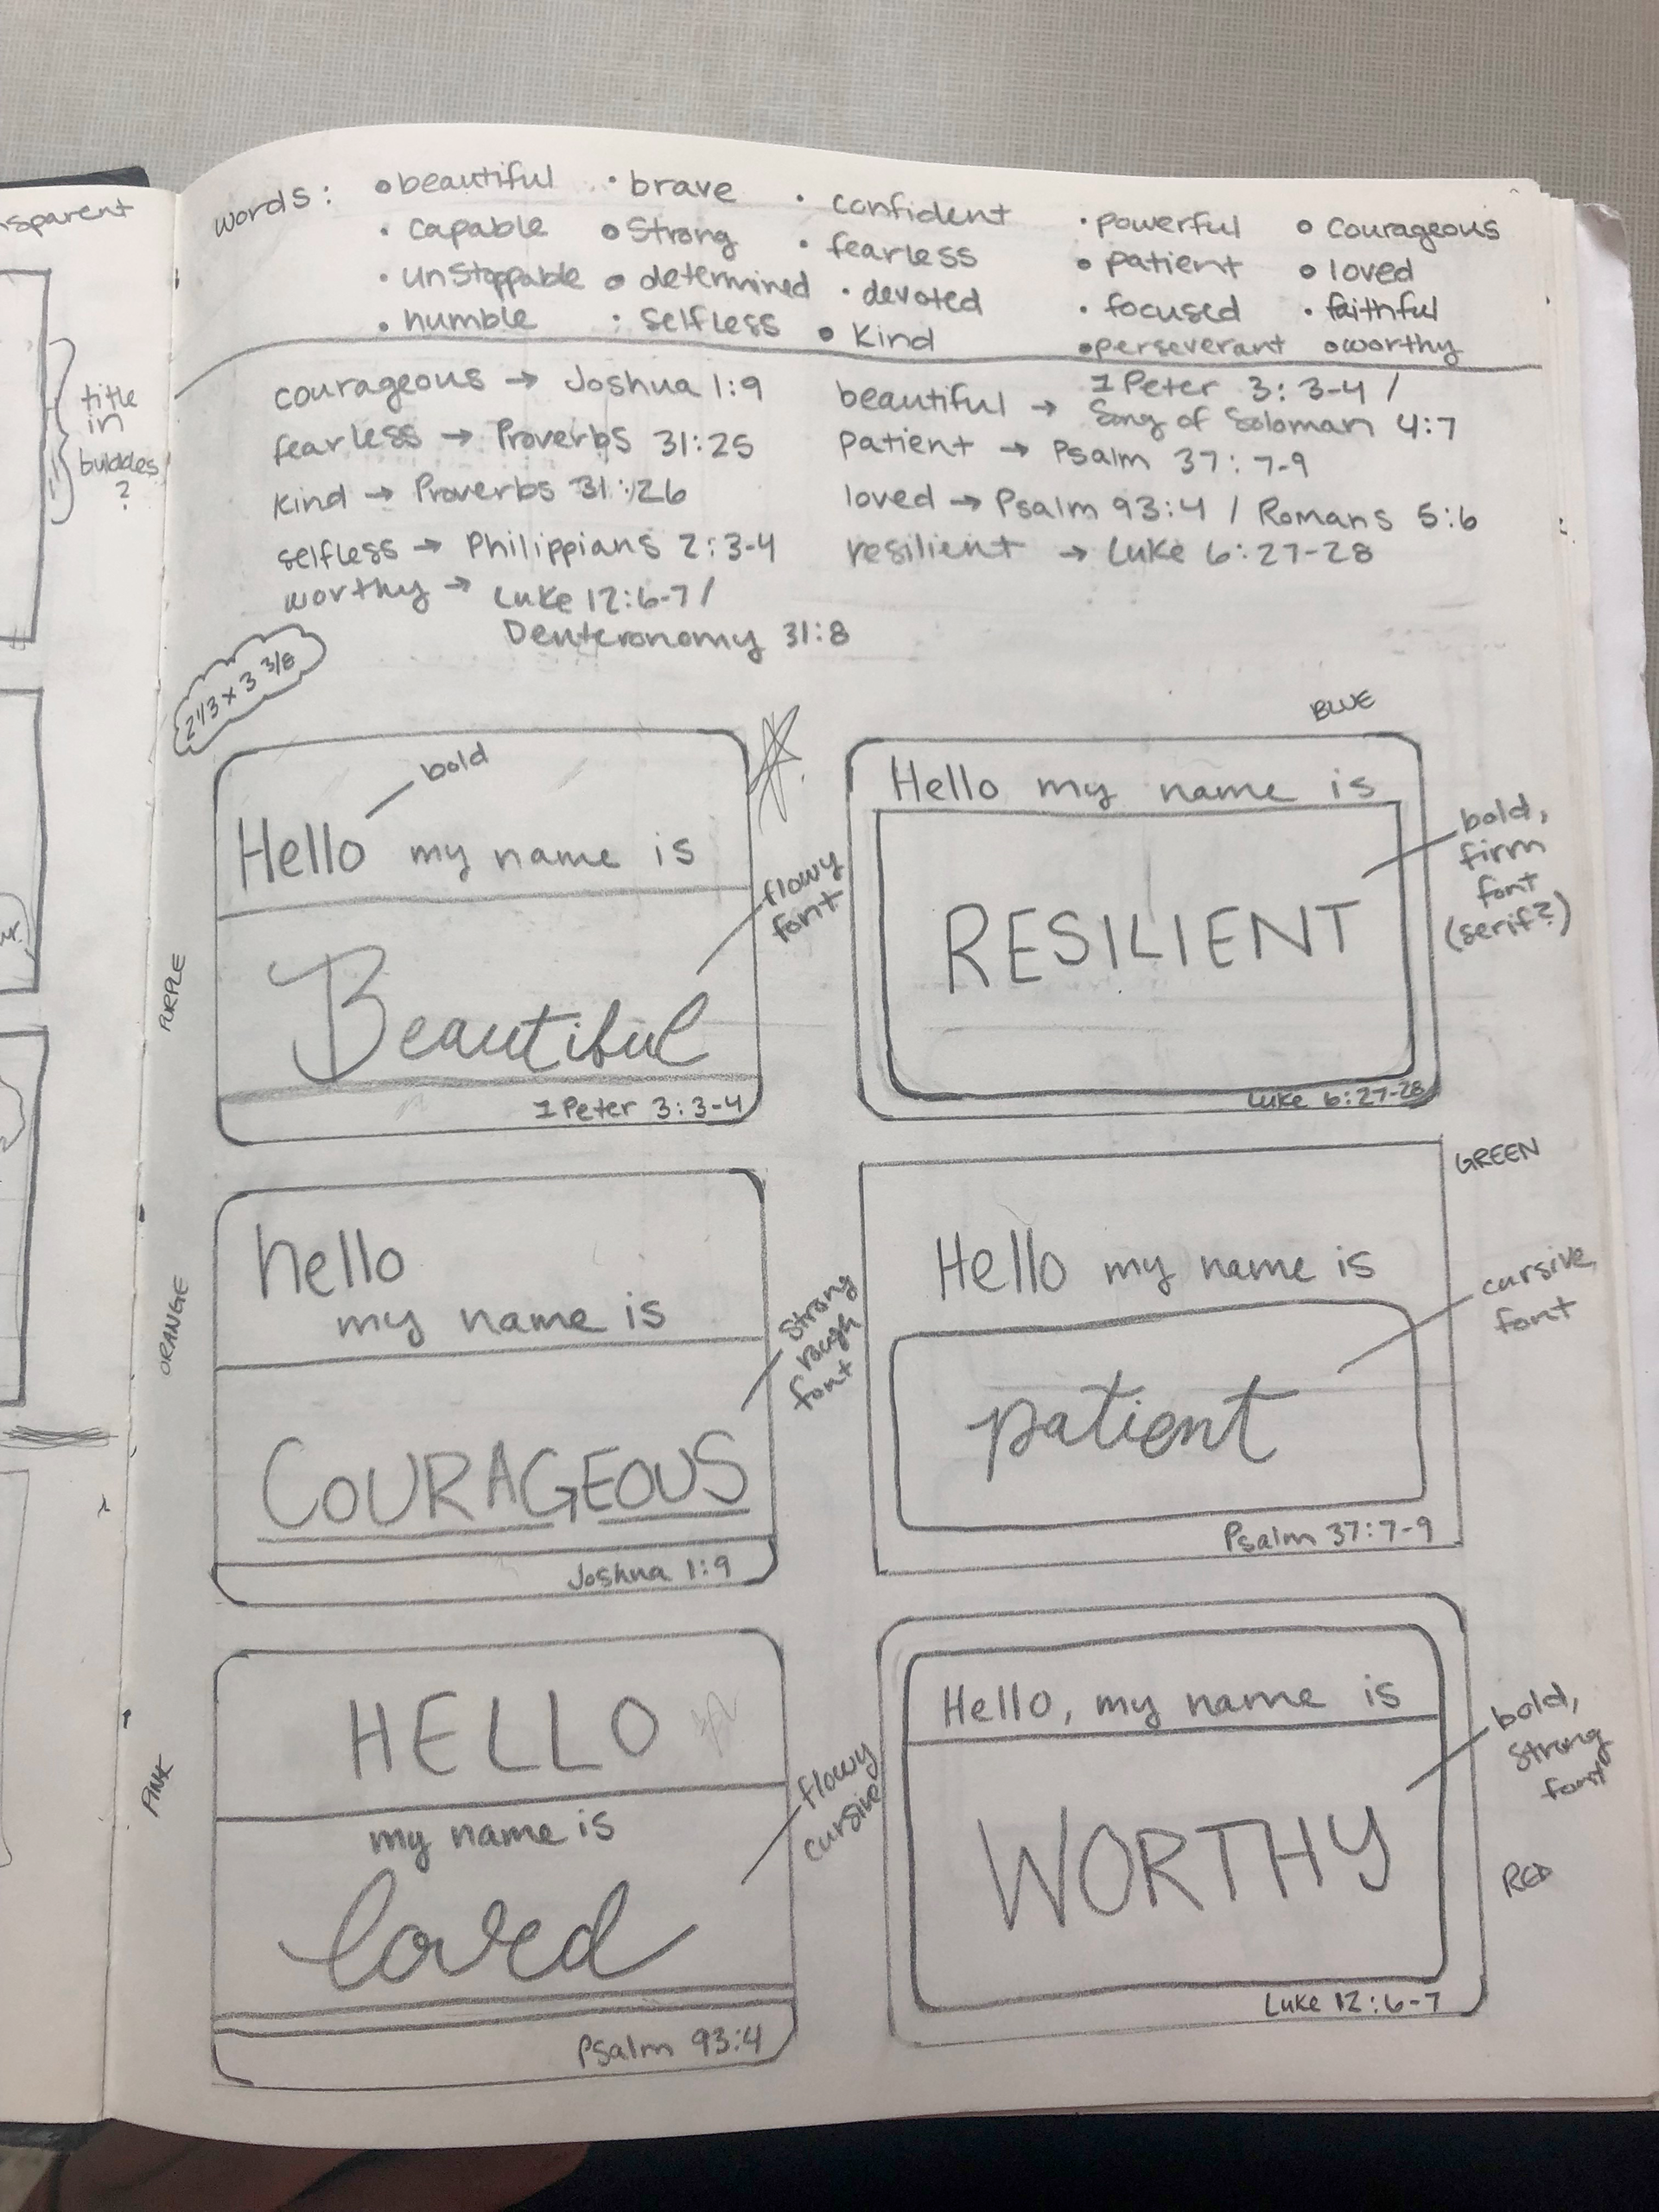 sparent
title
in
bubbles
?
words: • beautiful • brave • confident • powerful • courageous
• capable • strong • fearless • patient • loved
• unstoppable • determined • devoted • focused • faithful
• humble • selfless • kind • perseverant • worthy
courageous → Joshua 1:9
fearless → Proverbs 31:25
kind → Proverbs 31:26
selfless → Philippians 2:3-4
worthy → Luke 12:6-7 /
Deuteronomy 31:8
beautiful → 1 Peter 3:3-4 /
Song of Soloman 4:7
patient → Psalm 37:7-9
loved → Psalm 93:4 / Romans 5:6
resilient → Luke 6:27-28
2 1/3 x 3 3/8
PURPLE
bold
Hello my name is
flowy
font
Beautiful
1 Peter 3:3-4
BLUE
Hello my name is
bold,
firm
font
(serif?)
RESILIENT
Luke 6:27-28
ORANGE
hello
my name is
strong
rough
font
COURAGEOUS
Joshua 1:9
GREEN
Hello my name is
cursive
font
patient
Psalm 37:7-9
PINK
HELLO
my name is
flowy
cursive
loved
Psalm 93:4
Hello, my name is
bold,
strong
font
WORTHY
RED
Luke 12:6-7